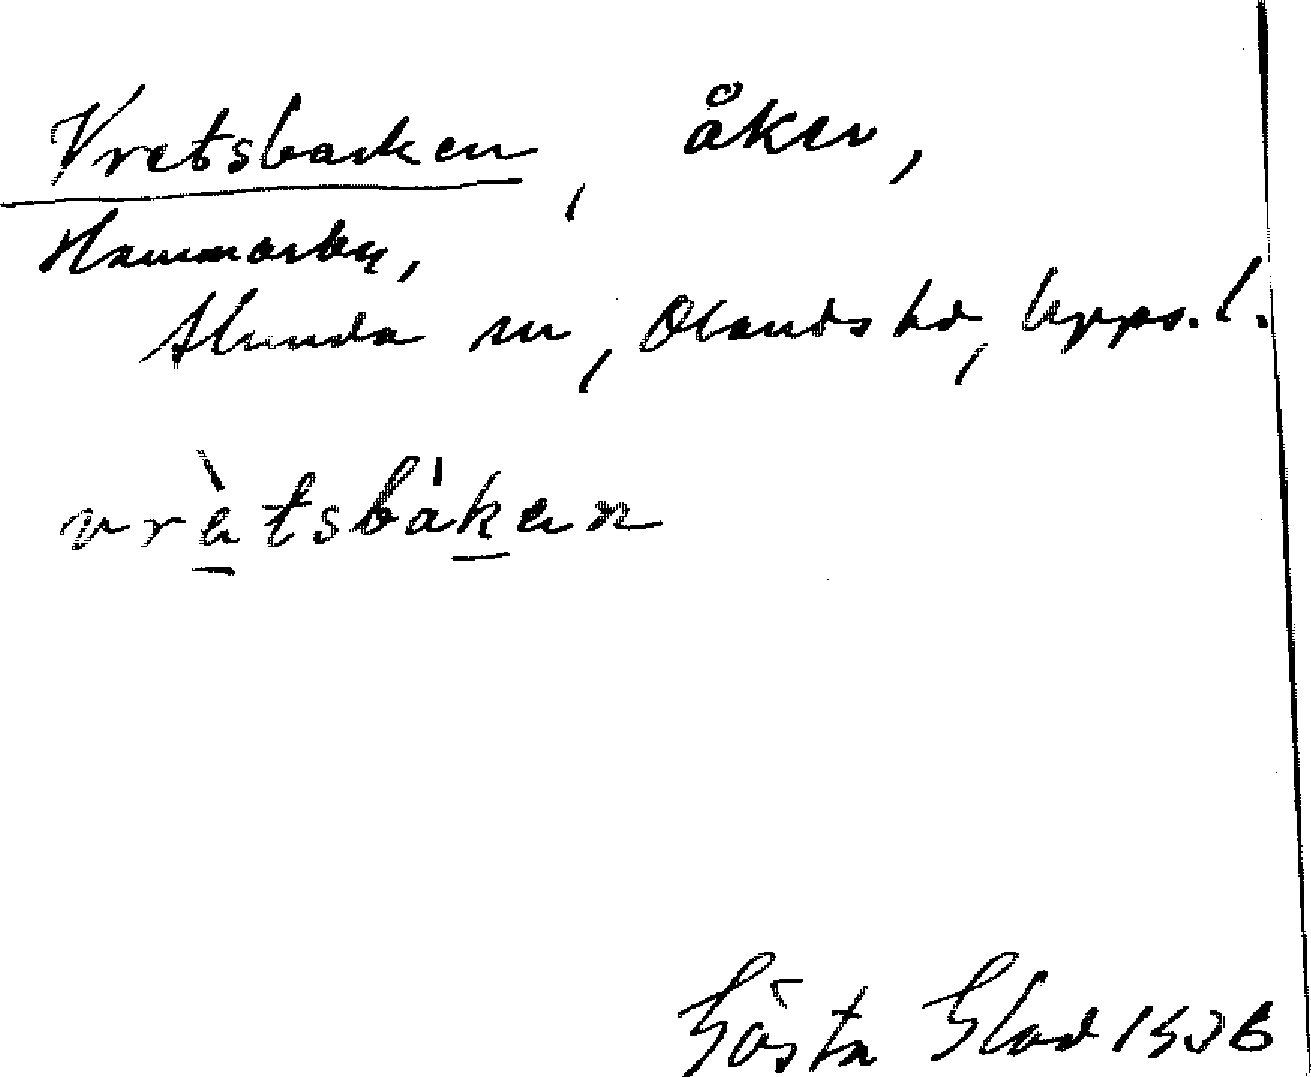 Vretsbacken, åker,
Hammarby,
Alunda sn, Olands hd, Upps. l.
vrètsbák̲en
Gösta Glad 1936